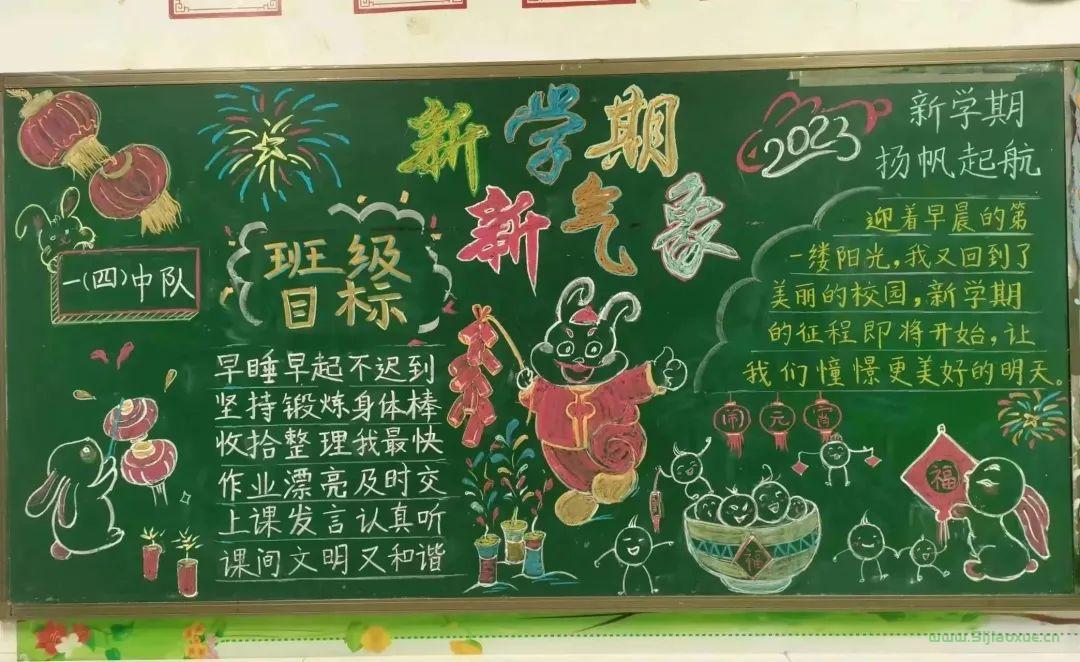 新学期
新气象
2023
新学期
扬帆起航
一(四)中队
班级
目标
早睡早起不迟到
坚持锻炼身体棒
收拾整理我最快
作业漂亮及时交
上课发言认真听
课间文明又和谐
迎着早晨的第
一缕阳光,我又回到了
美丽的校园,新学期
的征程即将开始,让
我们憧憬更美好的明天。
闹元宵
福
福
www.5ijiaoxue.cn